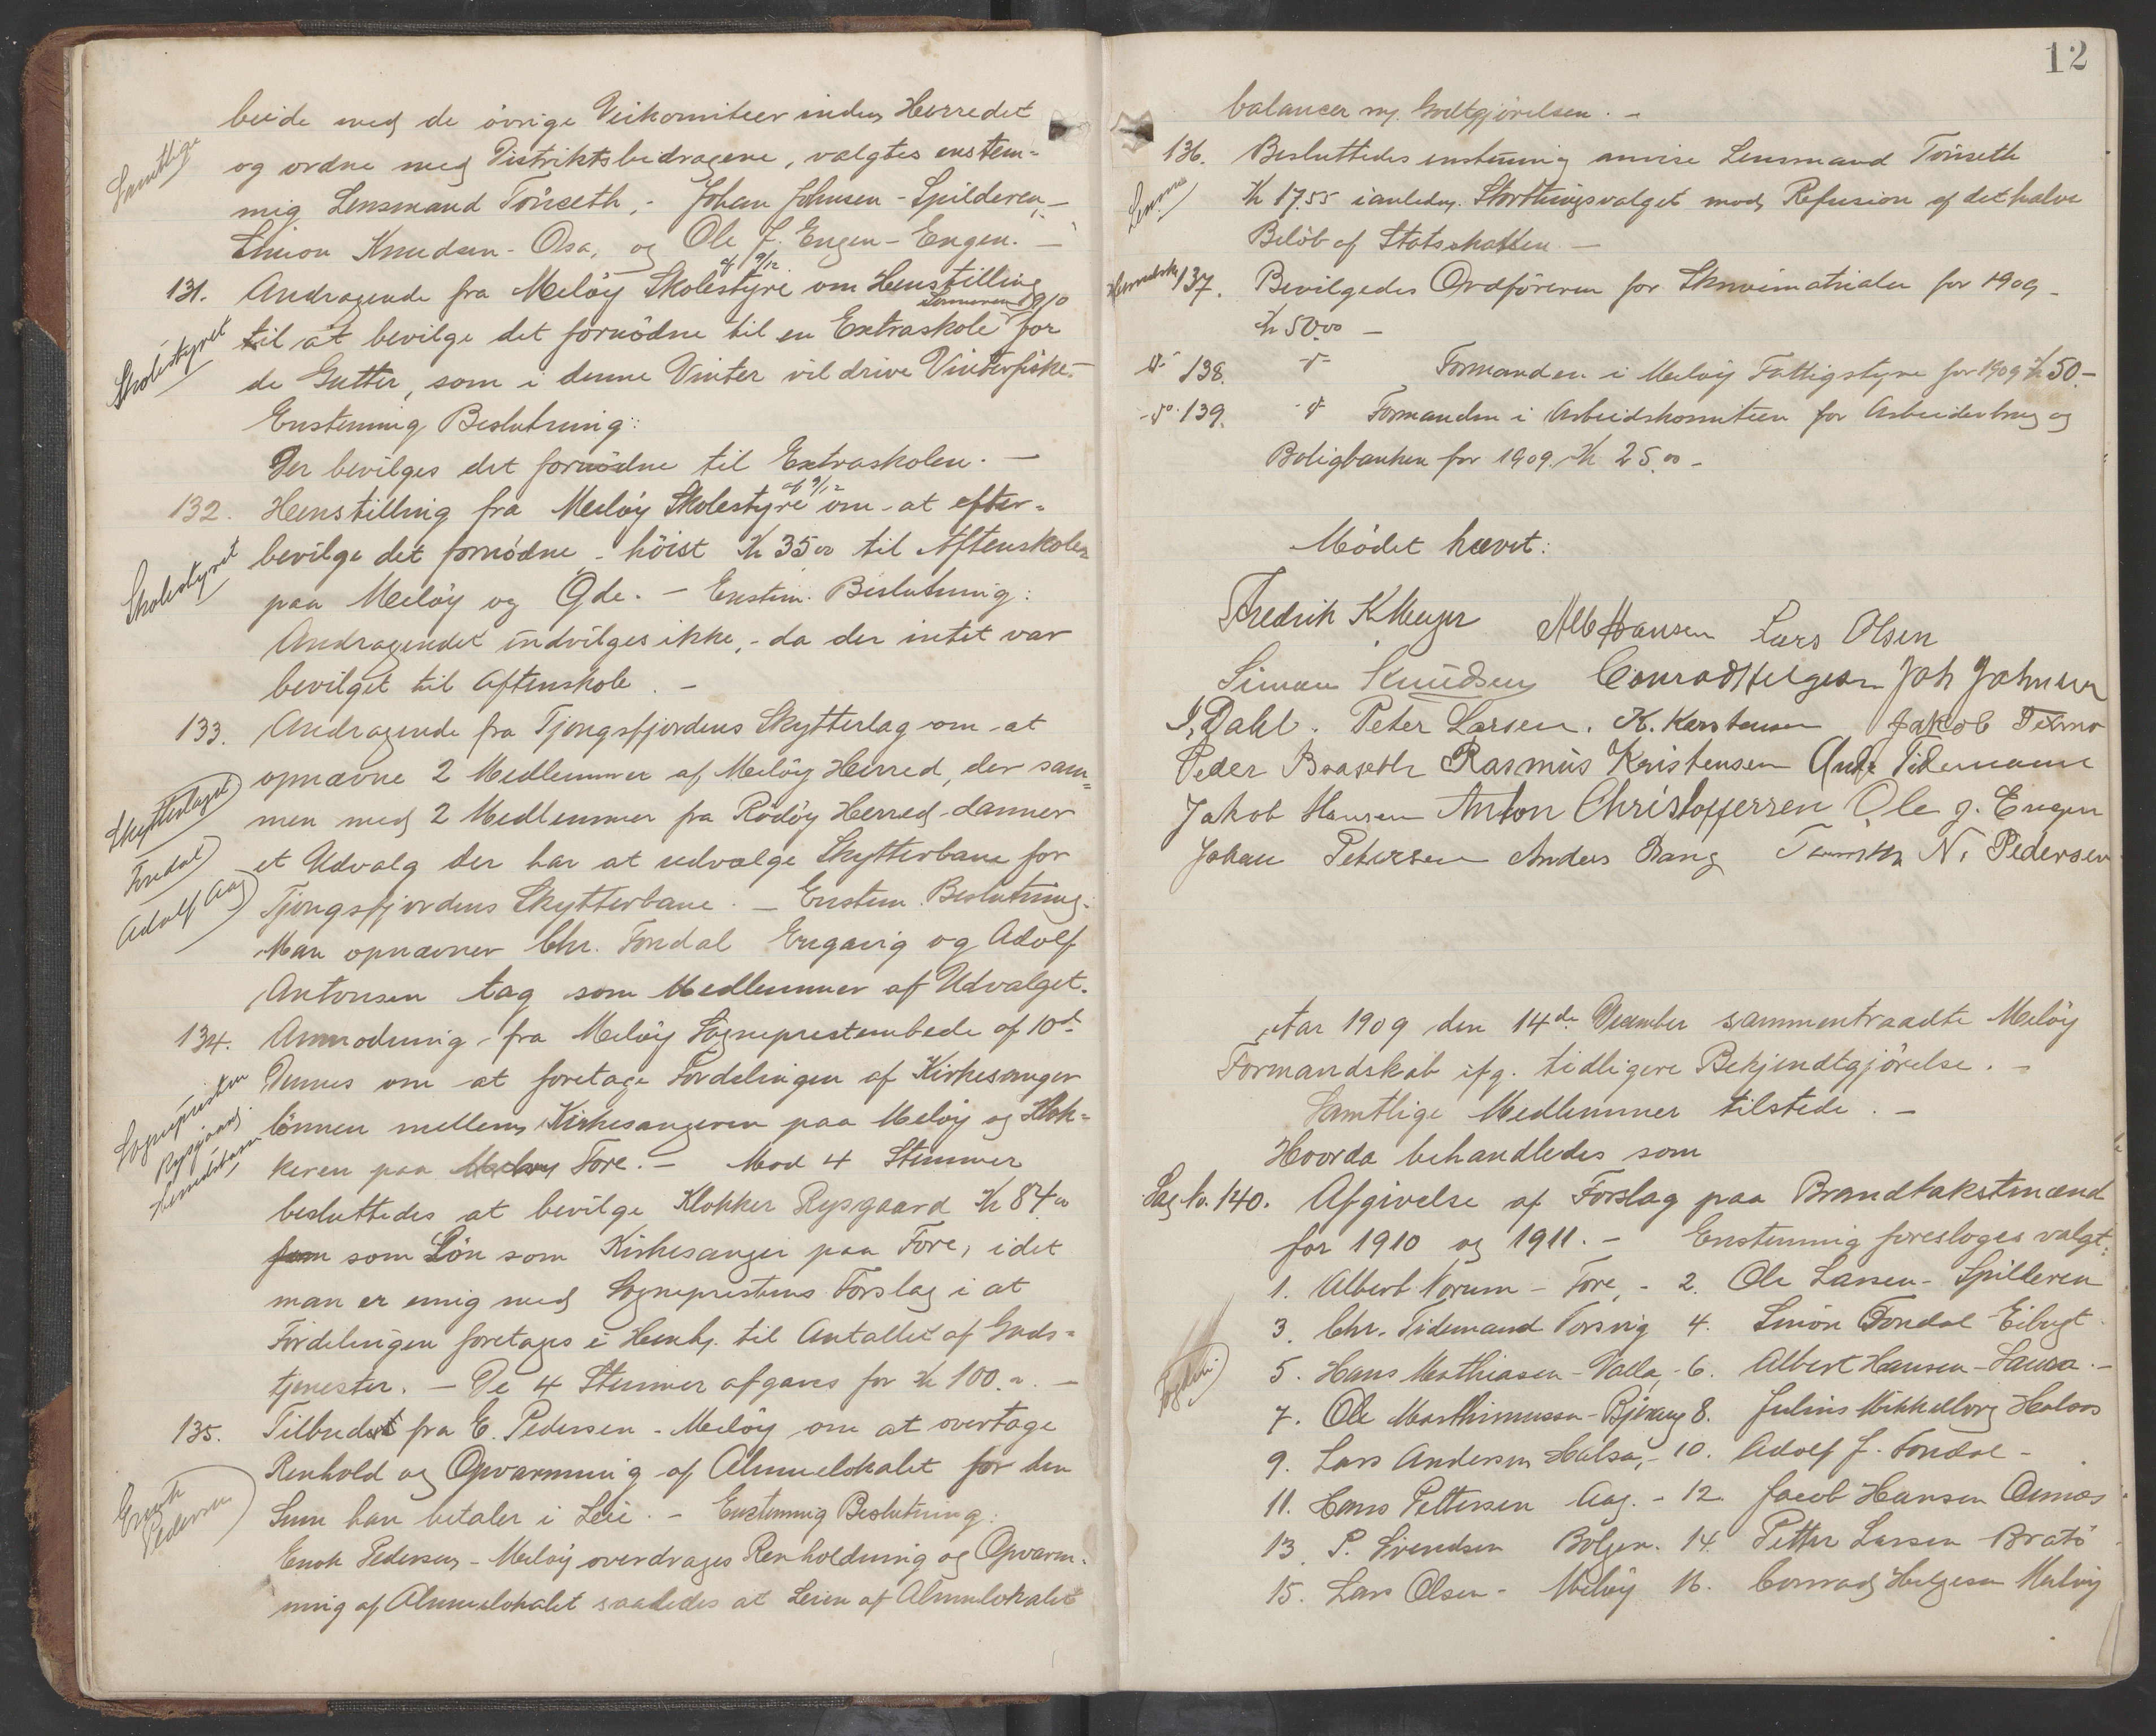 beide med de øvrige Veikomiteer inden Herredet
Samtlige
og ordne med Distriktsbidragene, valgtes enstem-
mig Lensmand Tönseth, - Johan Johnsen - Spilderen, -
Simon Knudsen - Osa, og Ole J. Engen - Engen. -
af 9/12.
131. Andragende fra Meløy Skolestyre om Henstilling
Sommeren 1910
til at bevilge det fornødne til en Extraskole for
Skolestyret
de Gutter, som i denne Vinter vil drive Vinterfiske. -
Enstemmig Beslutning:
Der bevilges det fornødne til Extraskolen. -
af 9/12
132. Henstilling fra Meløy Skolestyre om at efter-
bevilge det fornødne - høist Kr 35 00 til Aftenskolen
Skolestyret
paa Meløy og Gde. - Enstem. Beslutning:
Andragendet indvilges ikke, - da der intet var
bevilget til Aftenskole. -
133. Andragende fra Tjongsfjordens Skytterlag om at
opnævne 2 Medlemmer af Meløy Herred, der sam-
Skytterlaget
men med 2 Medlemmer fra Rødøy Herred danner
Fondal
et Udvalg der har at udvælge Skytterbane for
Adolf Aag
Tjongsfjordens Skytterbane. - Enstem. Beslutning:
Man opnævner Chr. Fondal Engavig og Adolf
Antonsen Aag som Medlemmer af Udvalget.
134. Anmodning fra Meløy Sogneprestembede af 10de
Dennes om at foretage Fordelingen af Kirkesanger
Sognepresten
Rysgaard
Herredskass.
lønnen mellem Kirkesangeren paa Meløy og Klok-
keren paa Fore. - Mod 4 Stemmer
besluttedes at bevilge Klokker Rysgaard Kr 84 00
som Løn som Kirkesanger paa Fore, idet
man er enig med Sogneprestens Forslag i at
Fordelingen foretages i Henh. til Antallet af Guds-
tjenester. - De 4 Stemmer afgaves for Kr 100. -
135. Tilbudet fra E. Pedersen - Meløy om at overtage
Renhold og Opvarmning af Almuelokalet for den
Enok
Pedersen
Sum han betaler i Leie. - Enstemmig Beslutning:
Enok Pedersen - Meløy overdrages Renholdning og Opvarm-
ning af Almuelokalet saaledes at Leien af Almuelokalet
12
balancer m. Godtgjørelsen. -
136. Besluttedes enstemmig anvise Lensmand Tönseth
Lensm
Kr 17.55 i anledn. Storthingsvalget mod Refusion af det halve
Beløb af Statskassen. -
Herredsk. 137. Bevilgedes Ordføreren for Skrivematrialer for 1909 -
Kr 50 00 -
138. Formanden i Meløy Fattigstyre for 1909 Kr 50 -
139. Formanden i Arbeidskomiteen for Arbeiderbrug og
Boligbanken for 1909. Kr 25.00 -
Mødet hævet:
Fredrik K Meyer Alb Hansen Lars Olsen
Simon Knudsen Conrad Helgesen Joh Johnsen
I. Dahl. Peter Larsen. K. Karstensen Jakob Texmo
Peder Braseth Rasmus Kristensen Andr Tidemann
Jakob Hansen Anton Christoffersen Ole J. Engen
Johan Petersen Anders Bang Tönseth N. Pedersen
Aar 1909 den 14de December sammentraadte Meløy
Formandskab ifg. tidligere Bekjendtgjørelse. -
Samtlige Medlemmer tilstede. -
Hvorda behandledes som
Sag No. 140. Afgivelse af Forslag paa Brandtakstmænd
for 1910 og 1911. - Enstemmig foresloges valgt:
1. Albert Torum - Fore, - 2. Ole Larsen - Spilderen
3. Chr. Tidemand Torsvig 4. Simon Fondal Eibugt
5. Hans Mathiasen - Valla, - 6. Albert Hansen - Saura. -
7. Ole Marthinussen - Bjærang 8. Julius Mikkelborg Halsos
9. Lars Andersen Halsa, - 10. Adolf J. Fondal -
11. Hans Pettersen Aag. - 12. Jacob Hansen Ørnæs
13. P. Svendsen Bolgen. 14. Petter Larsen Bratö
15. Lars Olsen - Meløy 16. Conrad Helgesen Meløy